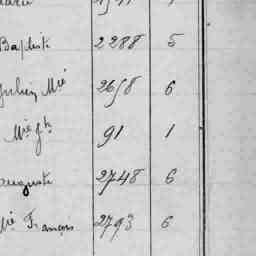 Baptiste 2288 5
Julien Mie 2658 6
Mie Jh 91 1
auguste 2748 6
Mie François 2793 6